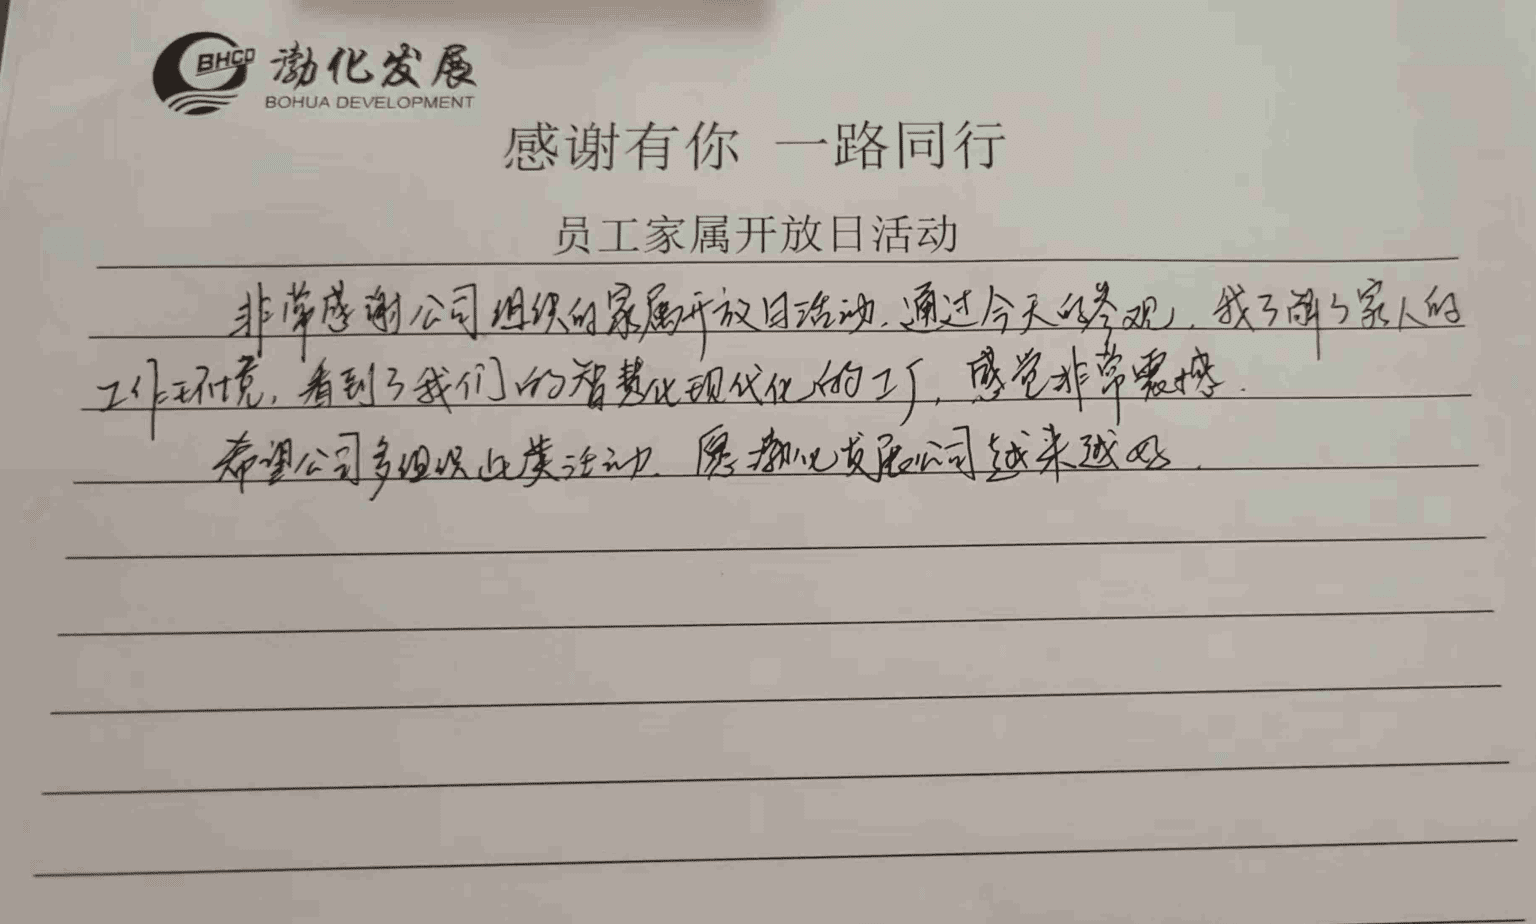 BHCD 渤化发展
BOHUA DEVELOPMENT
感谢有你 一路同行
员工家属开放日活动
非常感谢公司组织的家属开放日活动.通过今天的参观,我了解了家人的
工作环境,看到了我们的智慧化现代化的工厂,感觉非常震撼.
希望公司多组织此类活动.愿渤化发展公司越来越好.